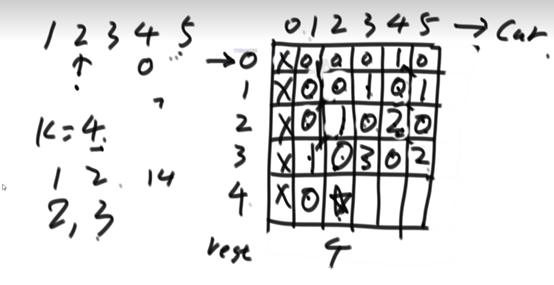 1 2 3 4 5
↑ 0
K=4
1 2 14
2, 3
0 1 2 3 4 5 → Cur
→ 0 X 0 0 0 1 0
1 X 0 0 1 0 1
2 X 0 1 0 2 0
3 X 1 0 3 0 2
4 X 0 ☆
rest